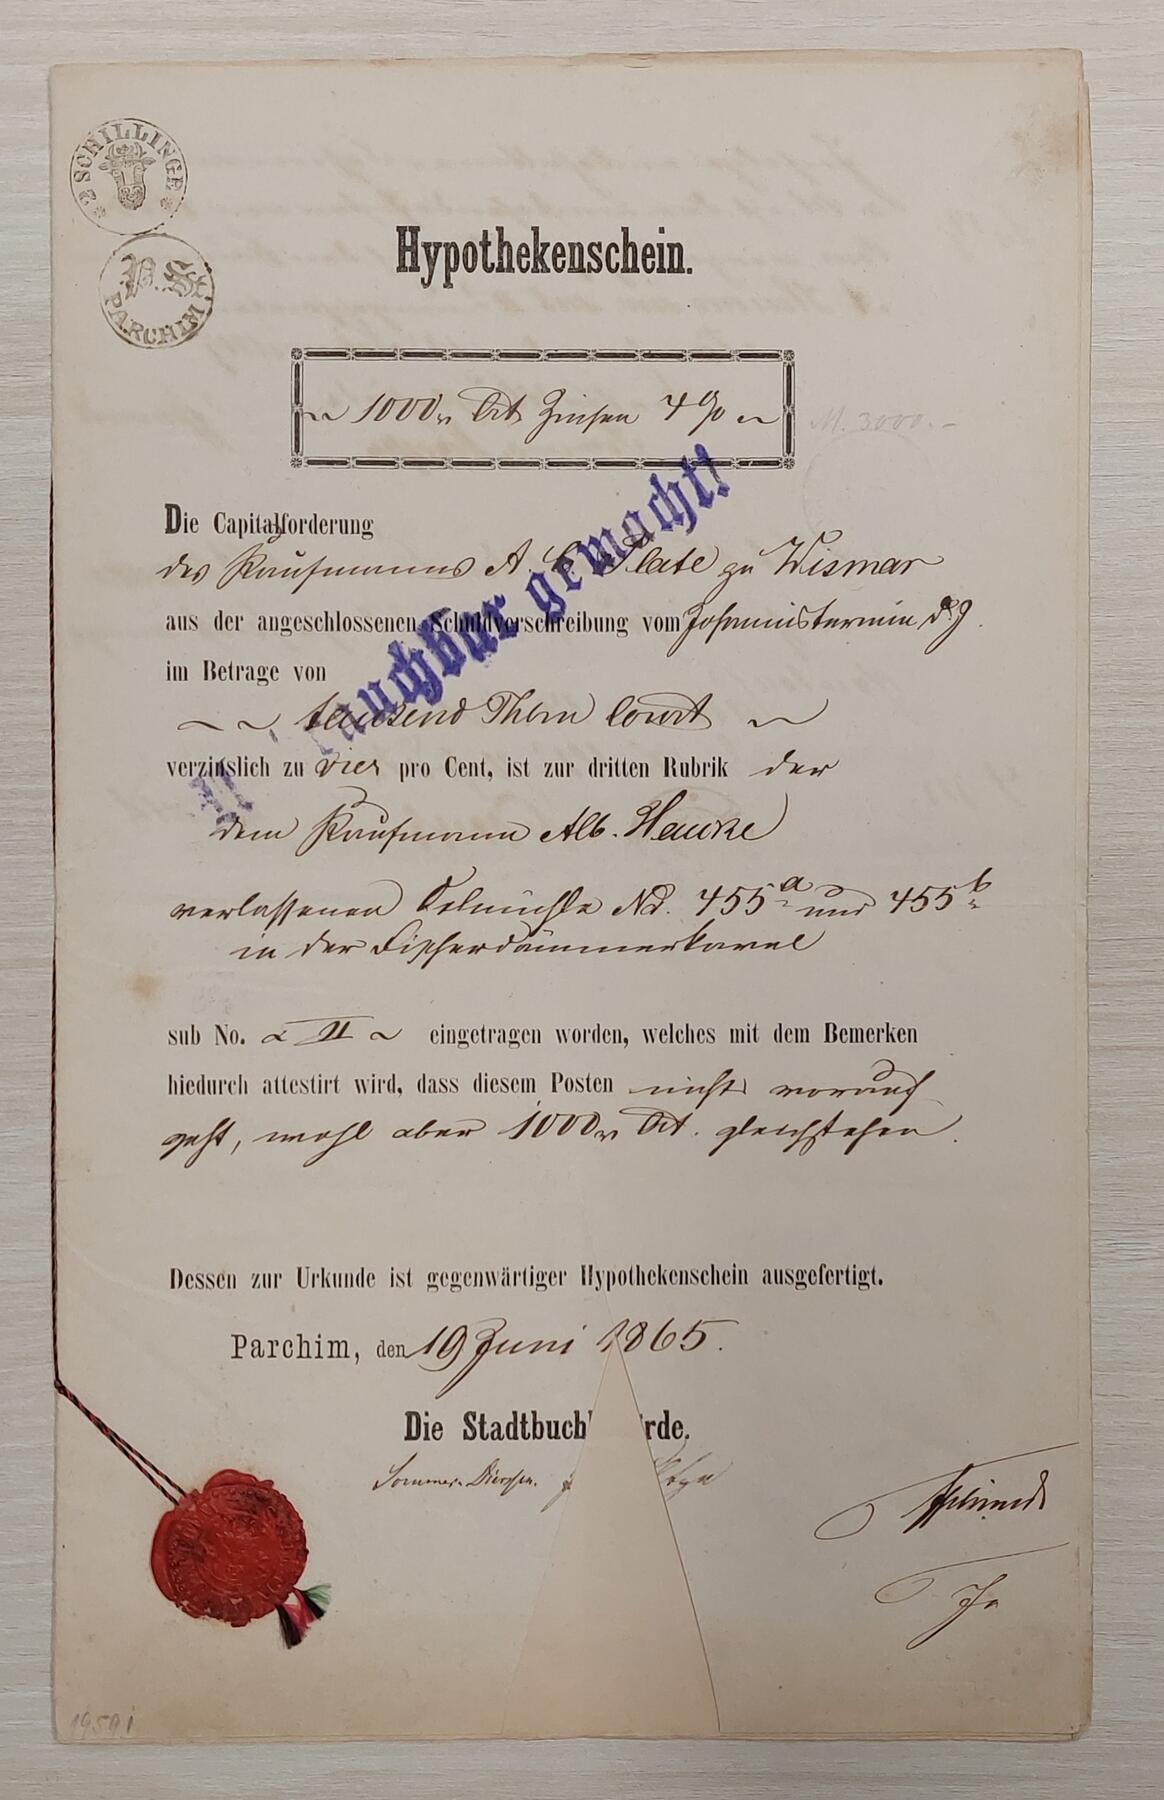 * 2 SCHILLINGE *
P. St.
PARCHIM
Hypothekenschein.
1000 rt Crt Zinsen 4 %
M. 3000.-
Die Capitalforderung
des Kaufmanns A. C. Plate zu Wismar
aus der angeschlossenen Schuldverschreibung vom Johannistermin d. J.
im Betrage von
tausend Thlrn Court
verzinslich zu vier pro Cent, ist zur dritten Rubrik der
dem Kaufmann Alb. Hancke
verlassenen Oelmühle No. 455 a und 455 b
in der Fischerdammerkavel
sub No. II eingetragen worden, welches mit dem Bemerken
hiedurch attestirt wird, dass diesem Posten nichts voraus
geht, wohl aber 1000 rt Crt. gleichstehen.
Unbrauchbar gemacht!
Dessen zur Urkunde ist gegenwärtiger Hypothekenschein ausgefertigt.
Parchim, den 19 Juni 1865.
Die Stadtbuchb rde.
Sommer-Dierssen.
1959i